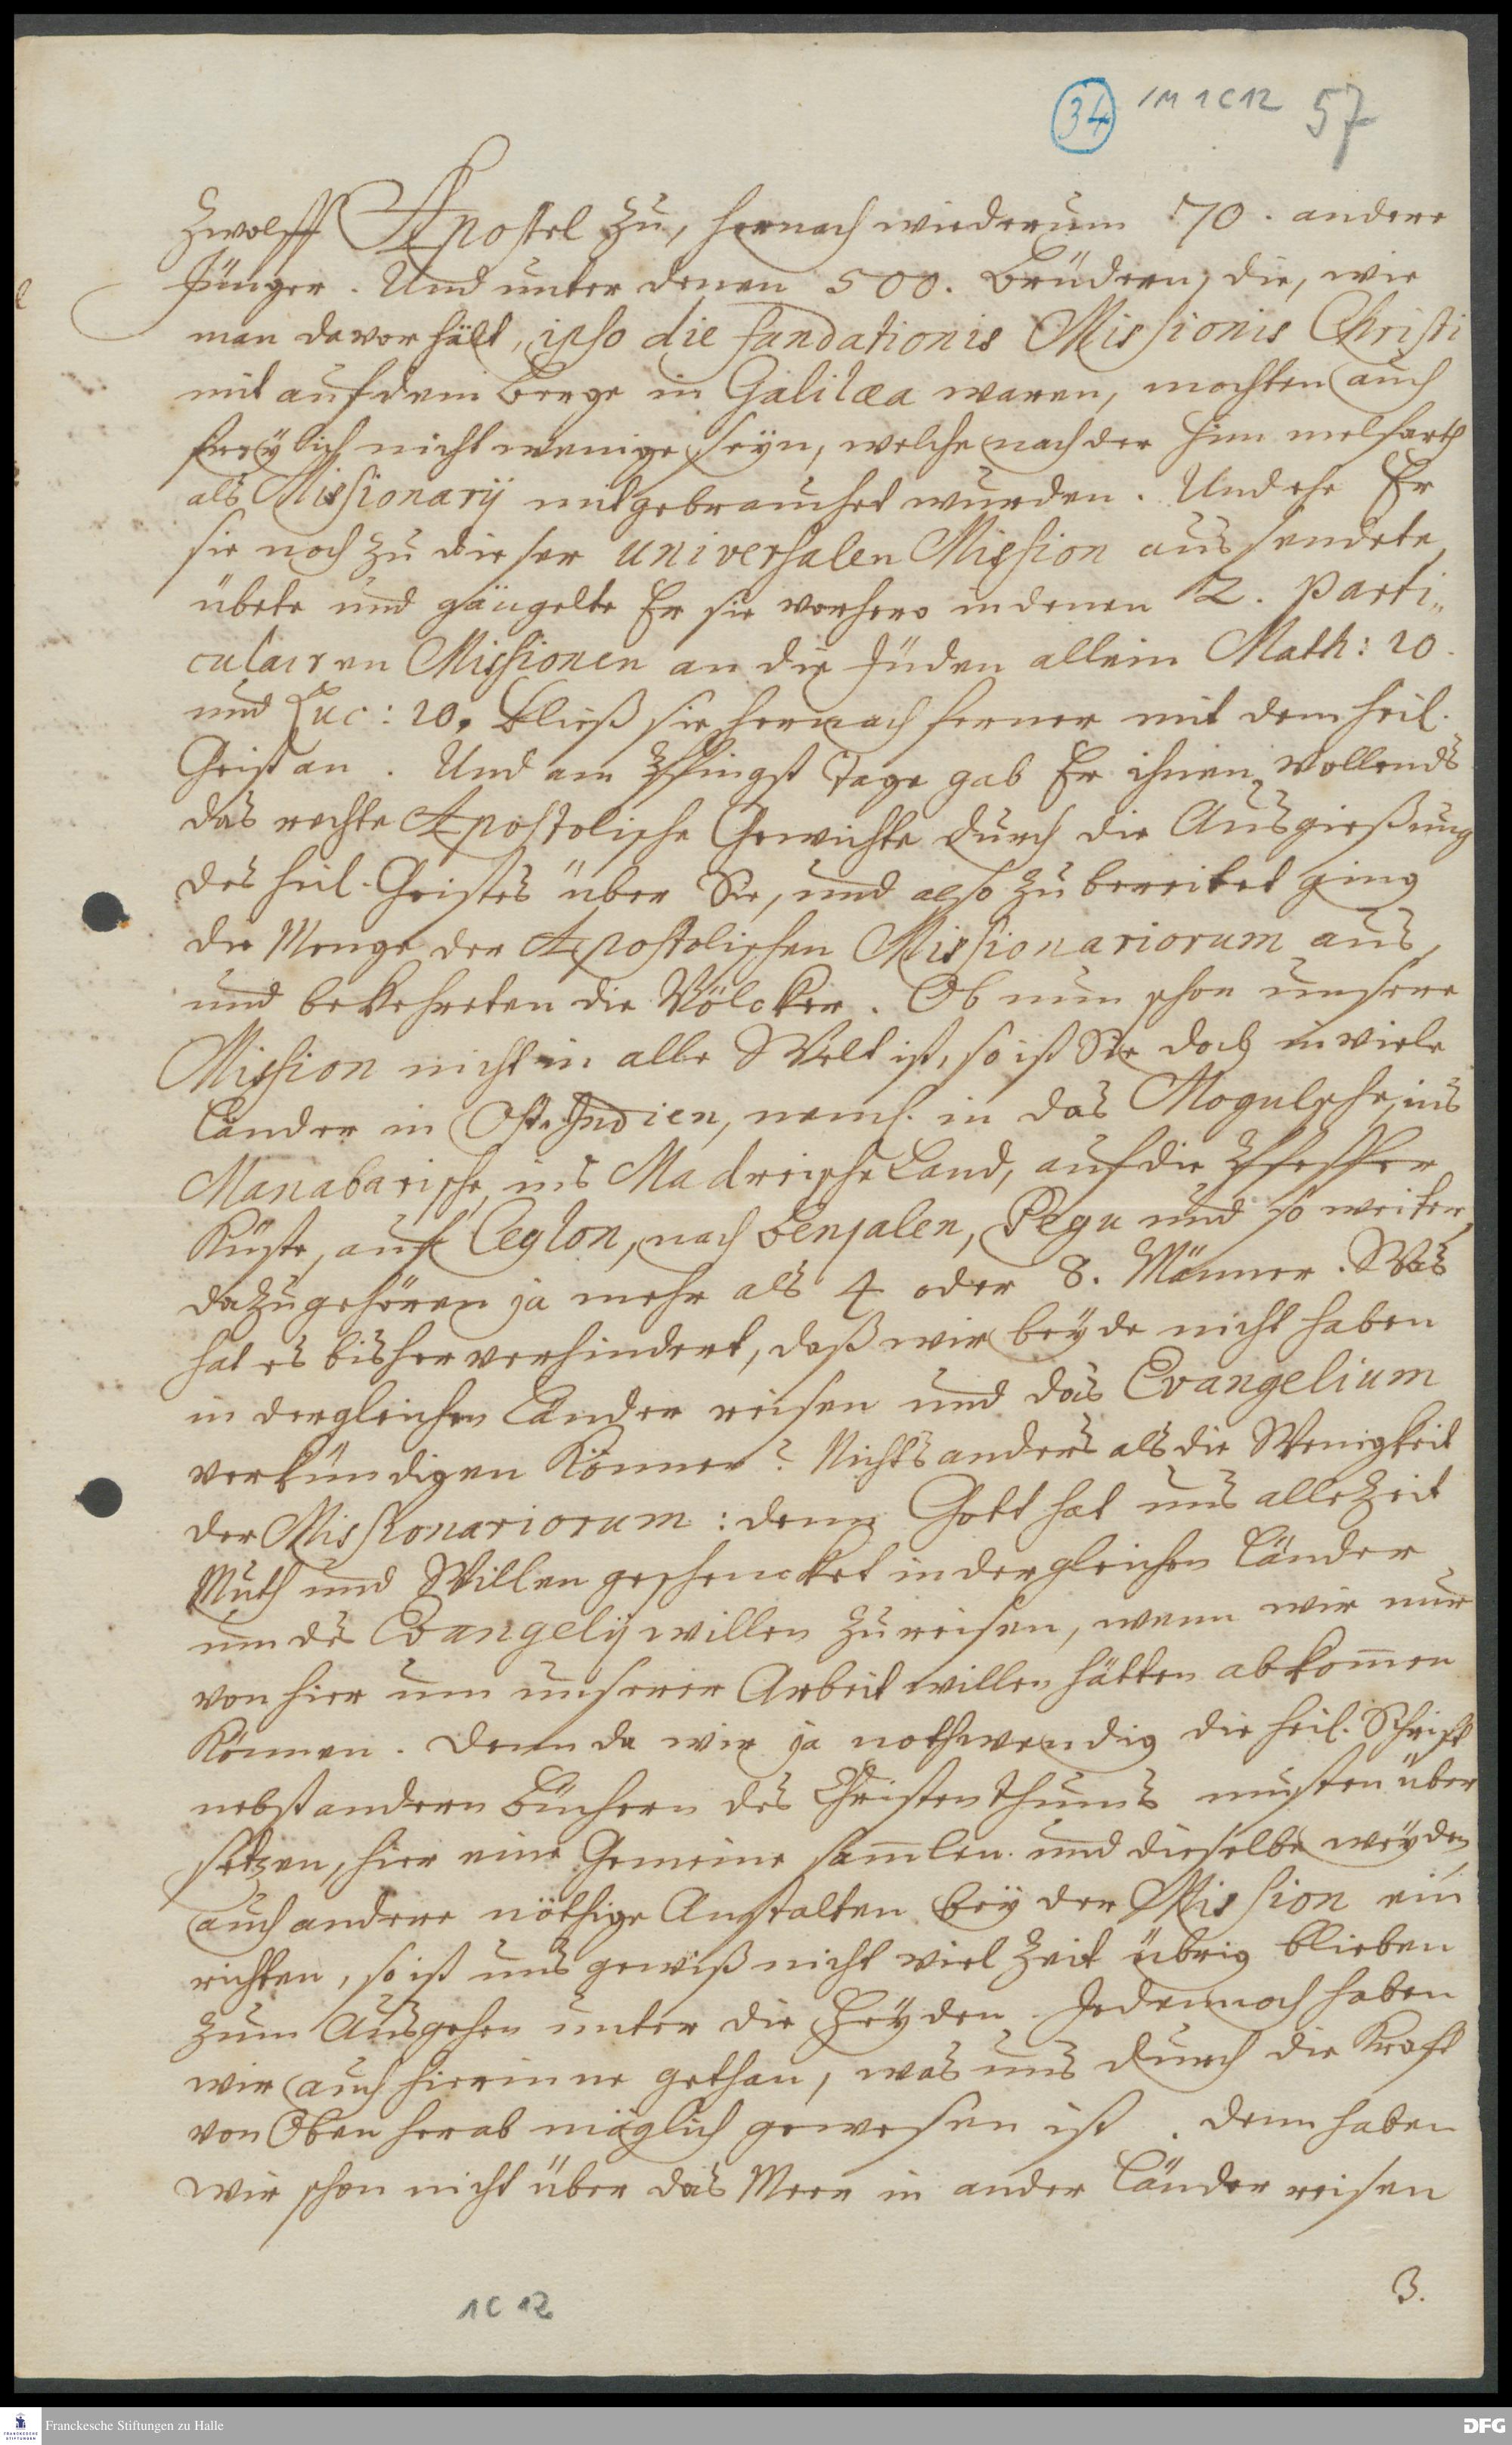 34 1M 1 C 12 57
Zwolff Apostel zu, hernach wiederum 70. andere
Jünger. Und unter denen 500. Brüdern, die, wie
man davor hält, ipso die fundationis Missionis Christi
mit auf dem Berge in Galilæa waren, mochten auch
freylich nicht wenige seyn, welche nach der Himmelfarth
als Missionarij mitgebrauchet wurden. Und ehe Er
sie noch zu dieser universalen Mission aussendete,
übete und gängelte Er sie vorhero in denen 2. Parti„
culairen Missionen an die Jüden allein Math: 10.
und Luc: 10. Bließ sie hernach ferner mit dem heil.
Geist an. Und am Pfingst Tage gab Er ihnen vollends
das rechte Apostolische Gewichte durch die Ausgießung
des heil. Geistes über Sie, und also zubereitet ging
die Menge der Apostolischen Missionariorum aus,
und bekehreten die Völcker. Ob nun schon unsere
Mission nicht in alle Welt ist, so ist Sie doch in viele
Länder in Ost-Indien, nemh. in das Mogulsche, ins
Manabarische, ins Madreische Land, auf die Pfeffer
Küste, auf Ceylon, nach Benjalen, Pegu und so weiter,
dazu gehören ja mehr als 4 oder 8. Männer. Was
hat es bisher verhindert, daß wir beyde nicht haben
in dergleichen Länder reisen und das Evangelium
verkündigen können? Nichts anders als die Wenigkeit
der Missionariorum: denn Gott hat uns allezeit
Muth und Willen geschencket in dergleichen Länder
um des Evangelij willen zu reisen, wenn wir nur
von hier um unserer Arbeit willen hätten abkom̅en
können. Denn da wir ja nothwendig die heil. Schrift
nebst andern Büchern des Christenthums musten über
setzen, hier eine Gemeine sam̅len und dieselbe weyden,
auch andere nöthige Anstalten bey der Mission ein
richten, so ist uns gewiß nicht viel Zeit übrig blieben
zum Ausgehen unter die Heyden. Jedennoch haben
wir auch hierinne gethan, was uns durch die Kraft
von Oben herab möglich gewesen ist. Denn haben
wir schon nicht über das Meer in ander Länder reisen
3.
1 C 12
Franckesche Stiftungen zu Halle
FRANCKESCHE STIFTUNGEN
DFG